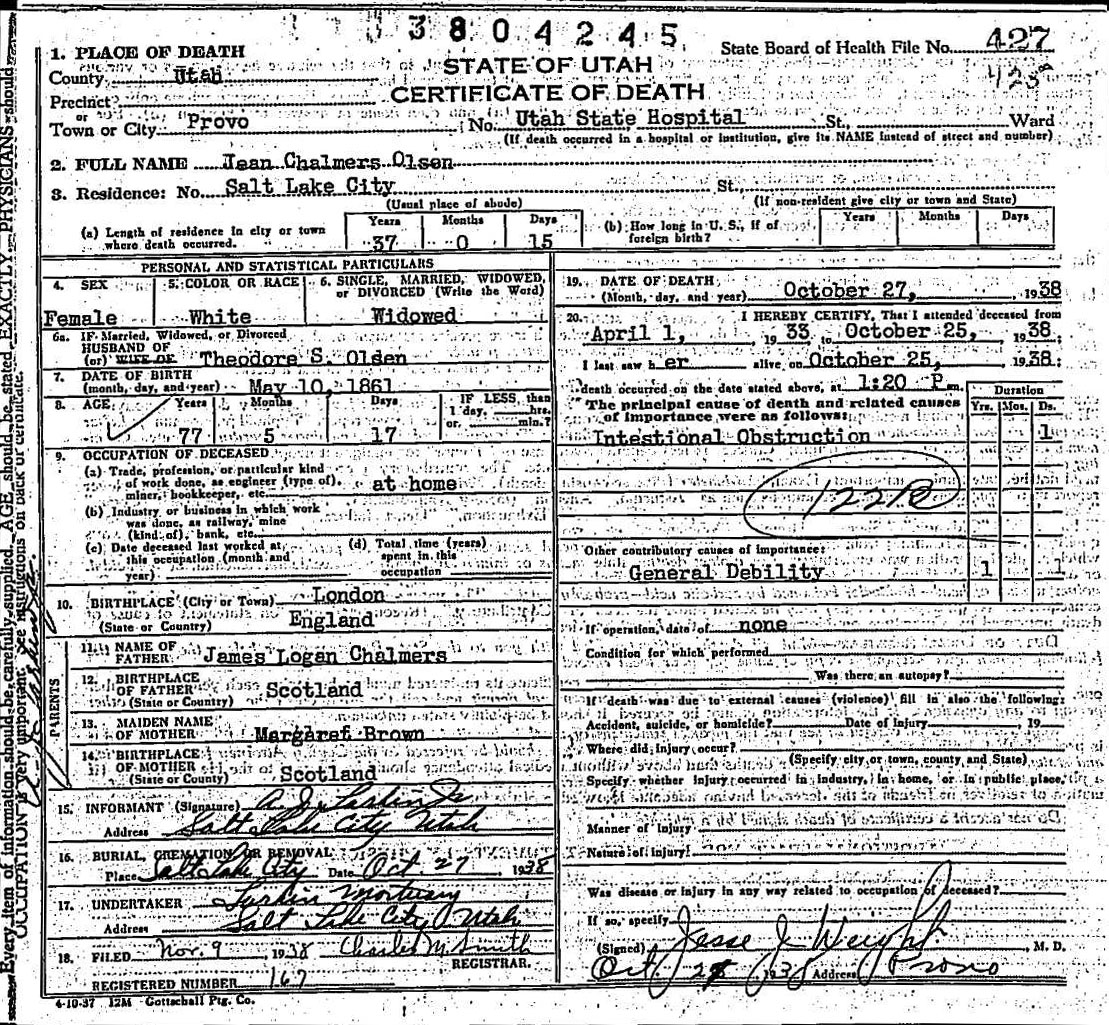 3804245
State Board of Health File No. 427
1. PLACE OF DEATH
STATE OF UTAH
County Utah
CERTIFICATE OF DEATH
Precinct
or
Town or City Provo No. Utah State Hospital St., Ward
(If death occurred in a hospital or institution, give its NAME instead of street and number)
2. FULL NAME Jean Chalmers Olsen
3. Residence: No. Salt Lake City St.
(Usual place of abode) (If non-resident give city or town and State)
(a) Length of residence in city or town where death occurred. Years 37 Months 0 Days 15
(b) How long in U. S., if of foreign birth? Years Months Days
PERSONAL AND STATISTICAL PARTICULARS
4. SEX Female
5. COLOR OR RACE White
6. SINGLE, MARRIED, WIDOWED, or DIVORCED (Write the Word) Widowed
6a. If Married, Widowed, or Divorced
HUSBAND OF
(or) WIFE OF Theodore S. Olsen
7. DATE OF BIRTH
(month, day, and year) May 10, 1861
8. AGE Years 77 Months 5 Days 17 IF LESS than 1 day, hrs. or min.?
9. OCCUPATION OF DECEASED
(a) Trade, profession, or particular kind of work done, as engineer (type of), miner, bookkeeper, etc. at home
(b) Industry or business in which work was done, as railway, mine (kind of), bank, etc.
(c) Date deceased last worked at this occupation (month and year)
(d) Total time (years) spent in this occupation
10. BIRTHPLACE (City or Town) London
(State or Country) England
PARENTS
11. NAME OF FATHER James Logan Chalmers
12. BIRTHPLACE OF FATHER (State or Country) Scotland
13. MAIDEN NAME OF MOTHER Margaret Brown
14. BIRTHPLACE OF MOTHER (State or County) Scotland
15. INFORMANT (Signature) A. J. Larkin Jr
Address Salt Lake City Utah
16. BURIAL, CREMATION OR REMOVAL
Place Salt Lake City Date Oct. 27 1938
17. UNDERTAKER Larkin Mortuary
Address Salt Lake City Utah
18. FILED Nov. 9 1938 Charles M Smith
REGISTRAR.
REGISTERED NUMBER 167
4-10-37 12M Gottschall Ptg. Co.
19. DATE OF DEATH
(Month, day, and year) October 27, 1938
20. I HEREBY CERTIFY, That I attended deceased from
April 1, 1933 to October 25, 1938
I last saw her alive on October 25, 1938
death occurred on the date stated above, at 1:20 P.m.
The principal cause of death and related causes of importance were as follows:
Duration
Yrs. Mos. Ds.
Intestional Obstruction 1
122B
Other contributory causes of importance:
General Debility 1 1
If operation, date of none
Condition for which performed
Was there an autopsy?
If death was due to external causes (violence) fill in also the following:
Accident, suicide, or homicide? Date of Injury 19
Where did injury occur?
(Specify city or town, county and State)
Specify whether injury occurred in industry, in home, or in public place,
Manner of injury
Nature of injury
Was disease or injury in any way related to occupation of deceased?
If so, specify
(Signed) Jesse J Weight M. D.
Oct 1938 Address Provo
Every item of information should be carefully supplied. AGE should be stated EXACTLY. PHYSICIANS should
OCCUPATION is very important. See instructions on back of certificate.